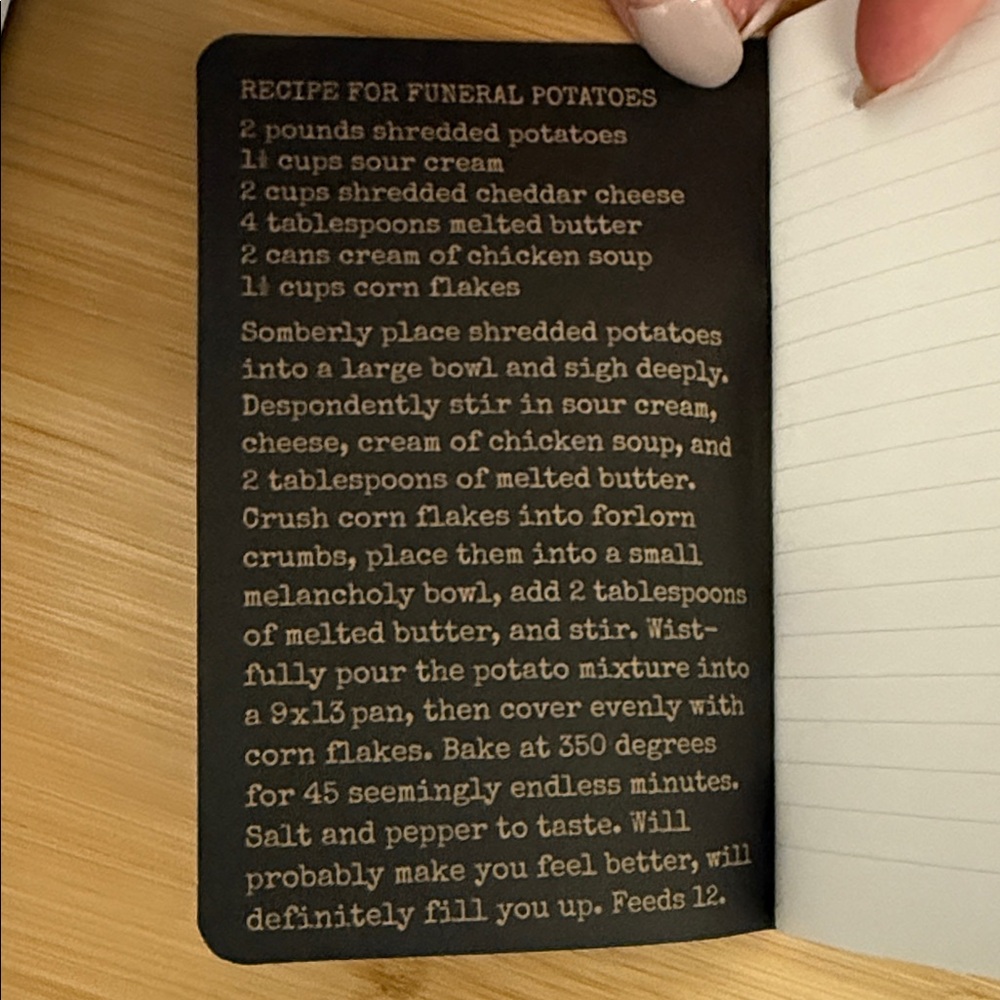 RECIPE FOR FUNERAL POTATOES
2 pounds shredded potatoes
1½ cups sour cream
2 cups shredded cheddar cheese
4 tablespoons melted butter
2 cans cream of chicken soup
1½ cups corn flakes
Somberly place shredded potatoes
into a large bowl and sigh deeply.
Despondently stir in sour cream,
cheese, cream of chicken soup, and
2 tablespoons of melted butter.
Crush corn flakes into forlorn
crumbs, place them into a small
melancholy bowl, add 2 tablespoons
of melted butter, and stir. Wist-
fully pour the potato mixture into
a 9x13 pan, then cover evenly with
corn flakes. Bake at 350 degrees
for 45 seemingly endless minutes.
Salt and pepper to taste. Will
probably make you feel better, will
definitely fill you up. Feeds 12.